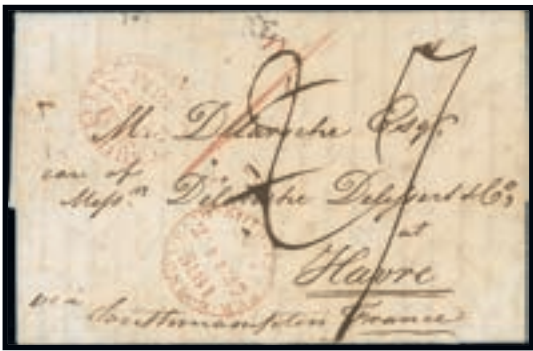 27
M. Delaroche Esqr.
care of
Messrs. Delaroche Delessert & Co.
at
Havre
via Southampton France